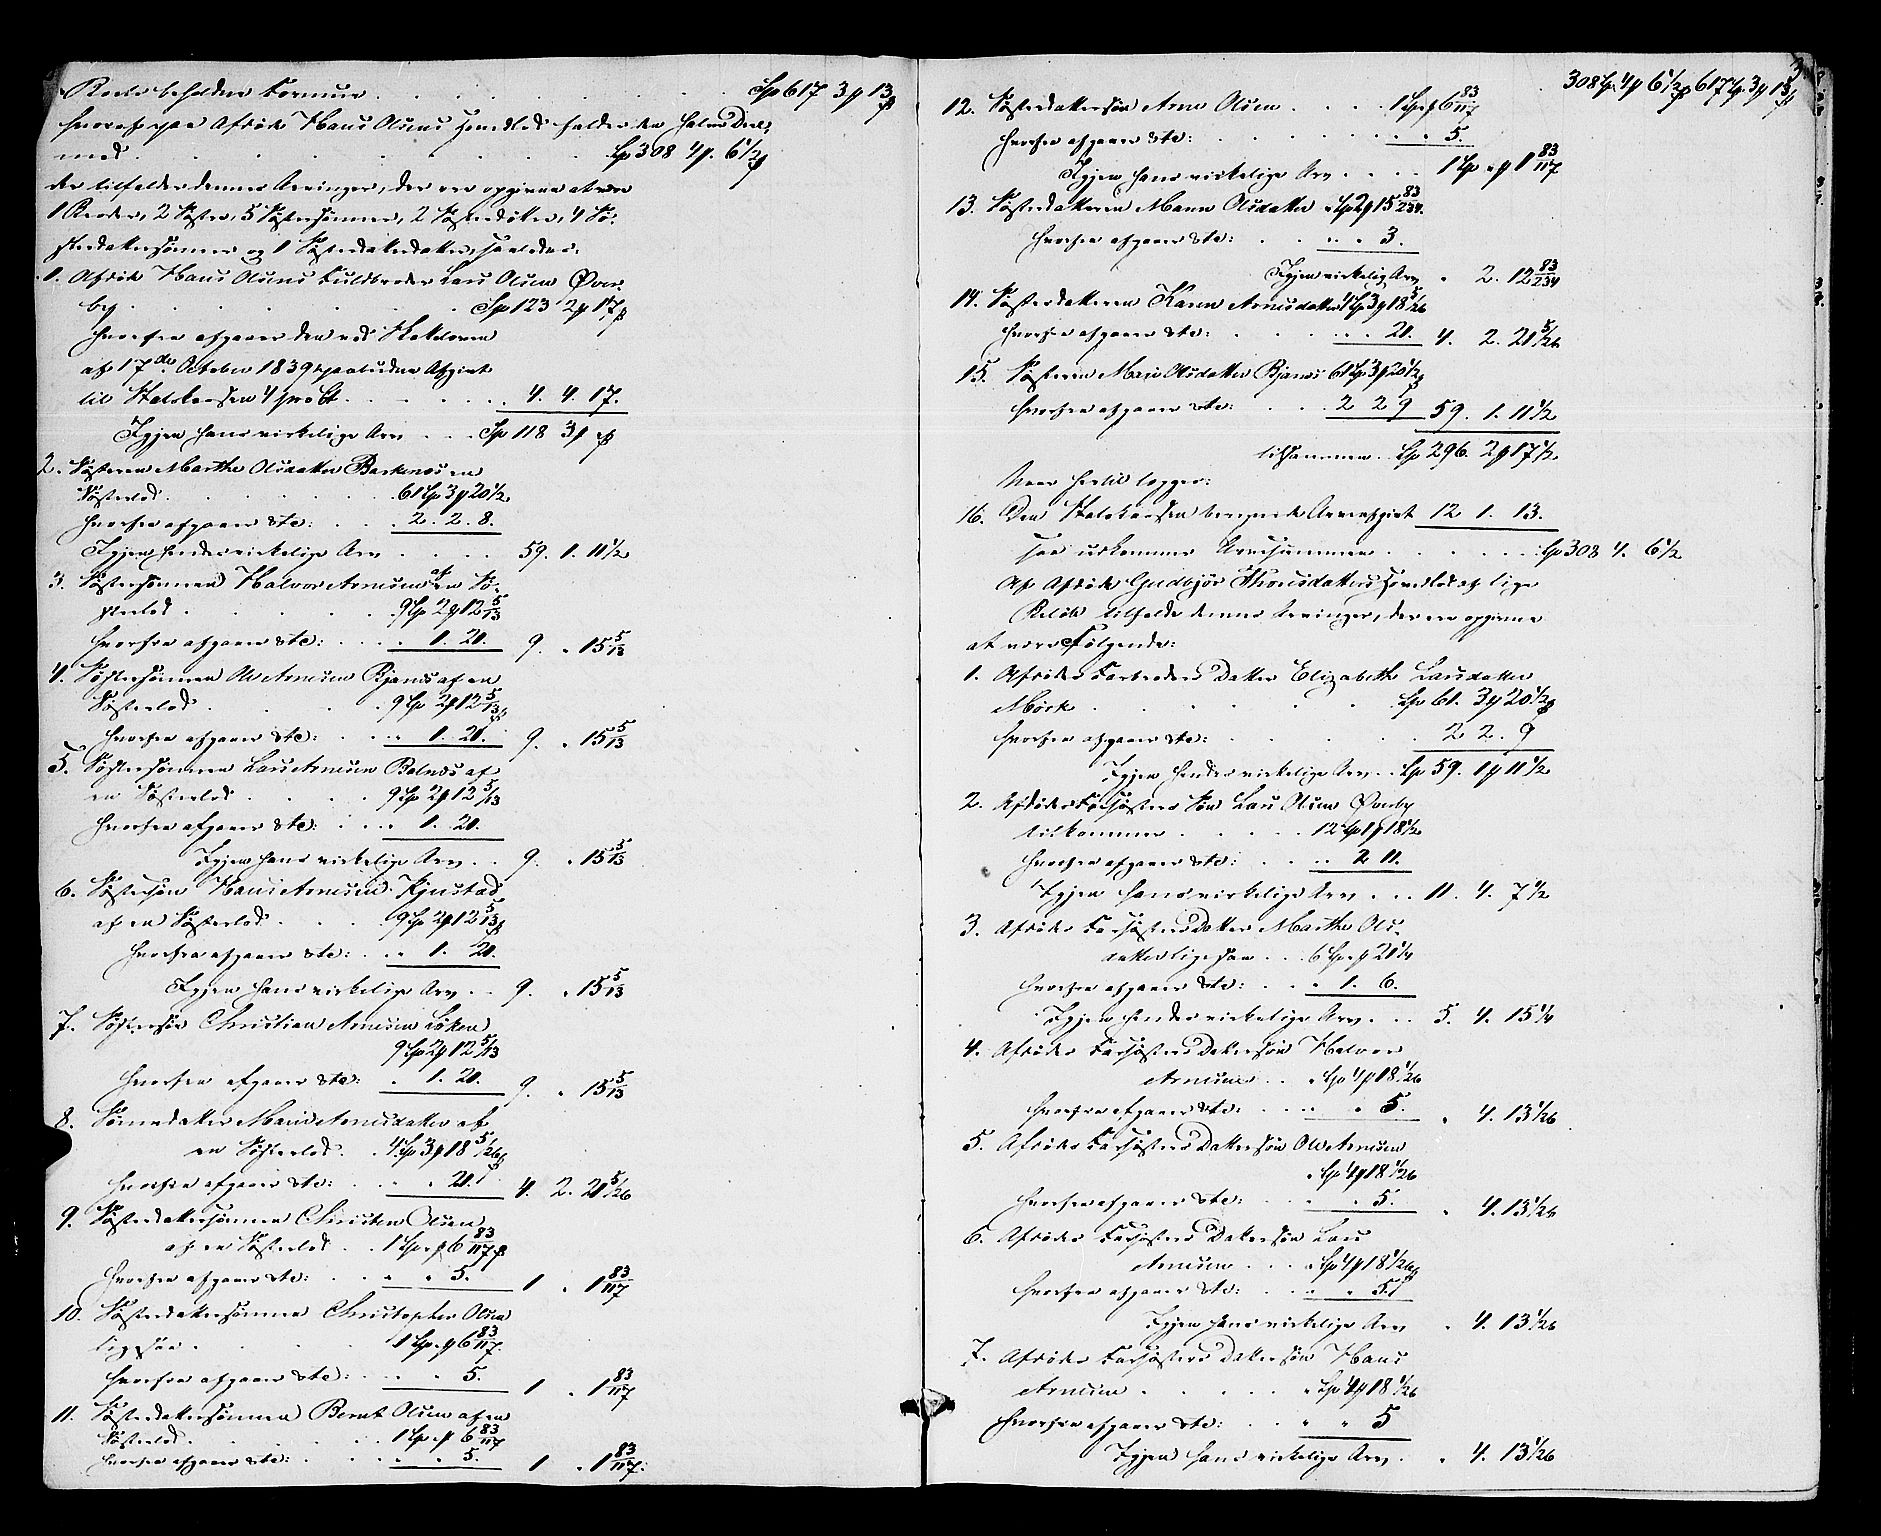 Reelt beholden Formue . . . Sp 617 3 ꝗ 13 ß
hvoraf paa Afdøde Hans Olsens Hovedlod falder den halve Deel,
med . . . Sp 308 4 ꝗ 6 1/2 ß
der tilfalder dennes Arvinger, der ere opgivne at være
1 Broder, 2 Søstre, 5 Søstersønner, 2 Søsterdøttre, 4 Sø-
sterdattersønner og 1 Søsterdatterdatter, saaledes:
1. Afdøde Hans Olsens Fuldbroder Lars Olsen Øver-
bye . . . Sp 123 2 ꝗ 17 ß
hvorfra afgaaer den ved Skatteloven
af 17de October 1839 paabudne Afgivt
til Statskassen 4 pro Ct . . . 4. 4. 17.
Igjen hans virkelige Arv . . . Sp 118 3 ꝗ " ß
2. Søsteren Marthe Olsdatter Barknes en
Søsterlod . . . 61 Sp 3 ꝗ 20 1/2
hvorfra afgaaer &tc: . . . 2. 2. 8.
Igjen hendes virkelige Arv . . . 59. 1. 11 1/2
3. Søstersønnen Halvor Arnesen af en Sø-
sterlod . . . 9 Sp 2 ꝗ 12 5/13
hvorfra afgaaer &tc: . . . " 1. 20. 9. " 15 5/13
4. Søstersønnen Ole Arnesen Bjanes af en
Søsterlod . . . 9 Sp 2 ꝗ 12 5/13 ß
hvorfra afgaaer &tc: . . . " 1. 20. 9. " 15 5/13
5. Søstersønnen Lars Arnesen Bolnes af
en Søsterlod . . . 9 Sp 2 ꝗ 12 5/13
hvorfra afgaaer &tc: . . . " 1. 20.
Igjen hans virkelige Arv . . 9. " 15 5/13
6. Søstersøn Hans Arnesen Kjustad
af en Søsterlod . . . 9 Sp 2 ꝗ 12 5/13 ß
hvorfra afgaaer &tc: . . . " 1. 20.
Igjen hans virkelige Arv . . 9. " 15 5/13
7. Søstersøn Christian Arnesen Løken
9 Sp 2 ꝗ 12 5/13
hvorfra afgaaer &tc: " 1. 20. 9. " 15 5/13
8. Sønnedatter Mari Arnesdatter af
en Søsterlod . . 4 Sp 3 ꝗ 18 5/26 ß
hvorfra afgaaer &tc: . . " " 20. 4. 2. 20 5/26
9. Søsterdattersønnen Christen Olsen
af en Søsterlod . . 1 Sp " ꝗ 6 83/117 ß
hvorfra afgaaer &tc: . . " " 5. 1 " 1 83/117
10. Søsterdattersønnen Christopher Olsen
ligesaa . . . 1 Sp " ꝗ 6 83/117
hvorfra afgaaer &tc: . . " " 5. 1 " 1 83/117
11. Søsterdattersønnen Bernt Olsen af en
Søsterlod . . . 1 Sp " ꝗ 6 83/117
hvorfra afgaaer &tc: . . " " 5. 1 " 1 83/117.
3
308 Sp 4 ꝗ 6 1/2 ß 617 Sp 3 ꝗ 13 ß
12. Søsterdattersøn Arne Olsen . . . 1 Sp " ꝗ 6 83/117
hvorfra afgaaer &tc: . . . " " 5.
Igjen hans virkelige Arv . . . 1 Sp " ꝗ 1 83/117
13. Søsterdatteren Maren Olsdatter " Sp 2 ꝗ 15 83/234.
hvorfra afgaaer &tc: . . " " 3.
Igjen virkelig Arv " 2. 12 83/234
14. Søsterdatteren Karen Arnesdatter 4 Sp 3 ꝗ 18 5/26
hvorfra afgaaer &tc: . . " " 20. 4. 2. 20 5/26
15. Søsteren Mari Olsdatter Bjanes 61 Sp 3 ꝗ 20 1/2 ß
hvorfra afgaaer &tc: . . 2 2 9 59. 1. 11 1/2
tilsammen . Sp 296. 2 ꝗ 17 1/2
Naar hertil lægges:
16. Den Statskassen beregnede Arveafgivt 12 1. 13.
saa udkommer Arvesummen . . . Sp 308 4. 6 1/2
Af Afdøde Gudbjør Thorsdatters Hovedlod af lige
Beløb tilfalde dennes Arvinger, der ere opgivne
at være Følgende:
1. Afdødes Farbroders Datter Elizabeth Larsdatter
Mørk . . . Sp 61. 3 ꝗ 20 1/2 ß
hvorfra afgaaer &tc: . . . 2 2. 9
Igjen hendes virkelige Arv . . Sp 59. 1 ꝗ 11 1/2
2. Afdødes Farsøsters Søn Lars Olsen Øverby
tilkommer . . . 12 Sp 1 ꝗ 18 1/2
hvorfra afgaaer &tc: . . . " 2 11.
Igjen hans virkelige Arv . . . 11. 4. 7 1/2
3. Afdødes Farsøsters Datter Marthe Ols-
datter ligesaa . . . 6 Sp " ꝗ 21 1/4
hvorfra afgaaer &tc: . . " 1. 6.
Igjen hendes virkelige Arv . . . 5. 4. 15 1/4
4. Afdødes Farsøsters Dattersøn Halvor
Arnesen . . " Sp 4 ꝗ 18 1/26
hvorfra afgaaer &tc: . . . " " 5. " 4. 13 1/26
5. Afdødes Farsøsters Dattersøn Ole Arnesen
" Sp 4 ꝗ 18 1/26
hvorfra afgaaer &tc: . . " " 5. " 4. 13 1/26
6. Afdødes Farsøsters Dattersøn Lars
Arnesen . . . " Sp 4 ꝗ 18 1/26 ß
hvorfra afgaaer &tc: . . " " 5.
Igjen hans virkelige Arv " 4. 13 1/26
7. Afdødes Farsøsters Dattersøn Hans
Arnesen . . . " Sp 4 ꝗ 18 1/26
hvorfra afgaaer &tc: . . " " 5
Igjen hans virkelige Arv . " 4. 13 1/26